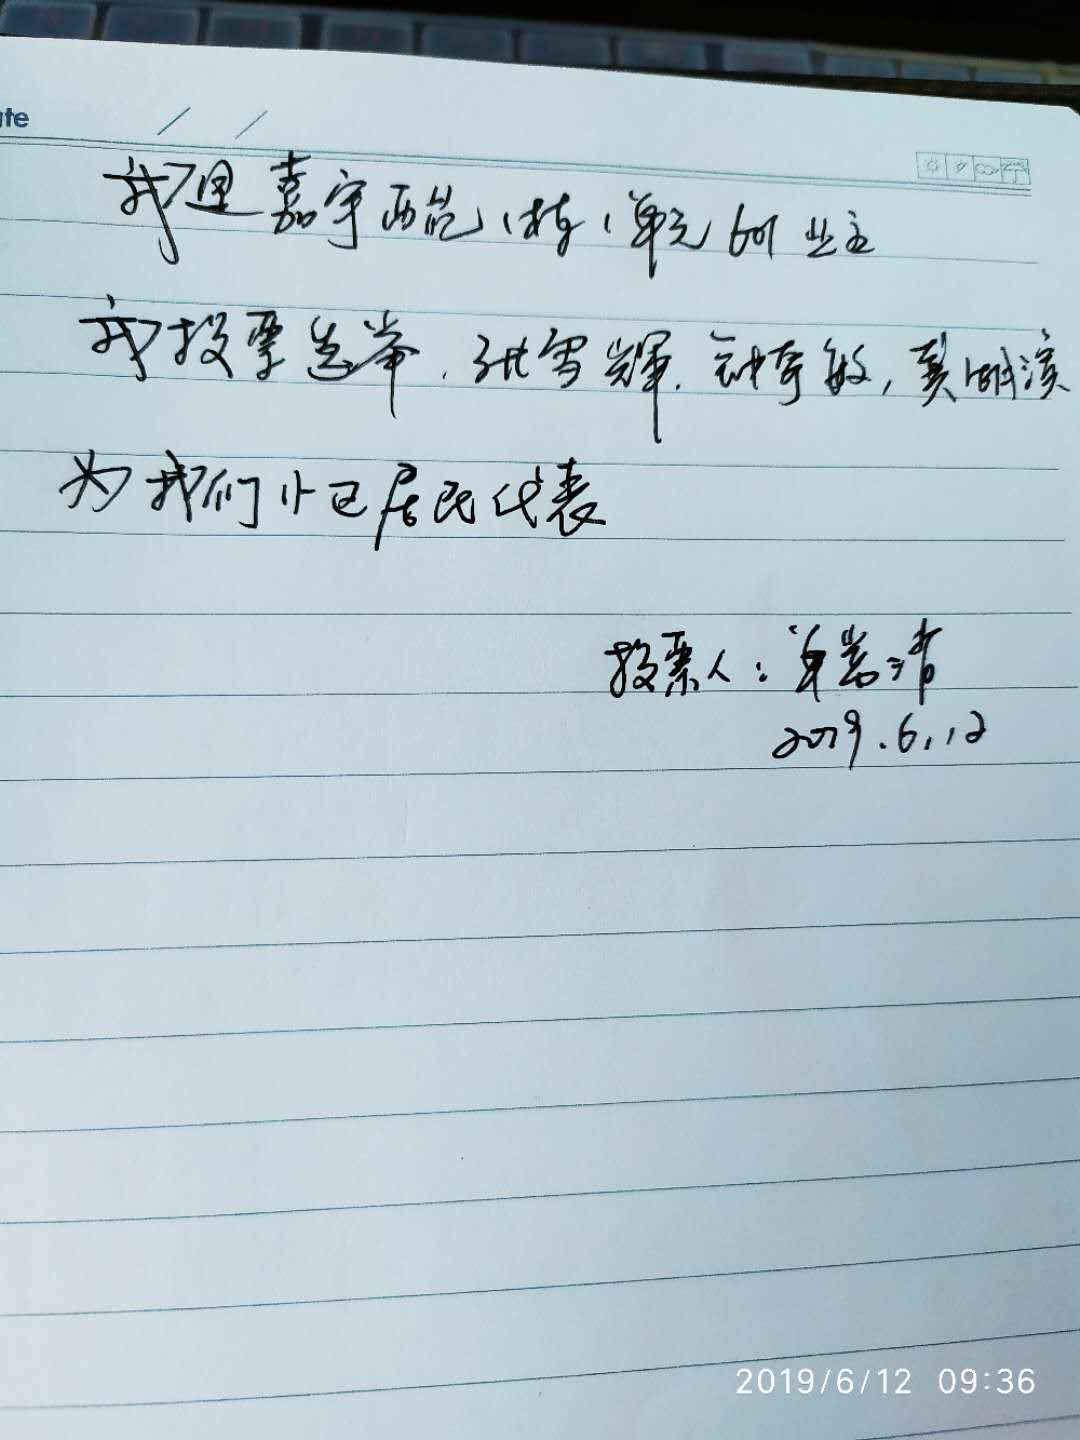 ate / /
我是嘉宇西苑1栋1单元601业主
我投票选举.张雪辉.钟奇敏,龚
为我们小区居民代表
投票人:单
2019.6.12
2019/6/12 09:36